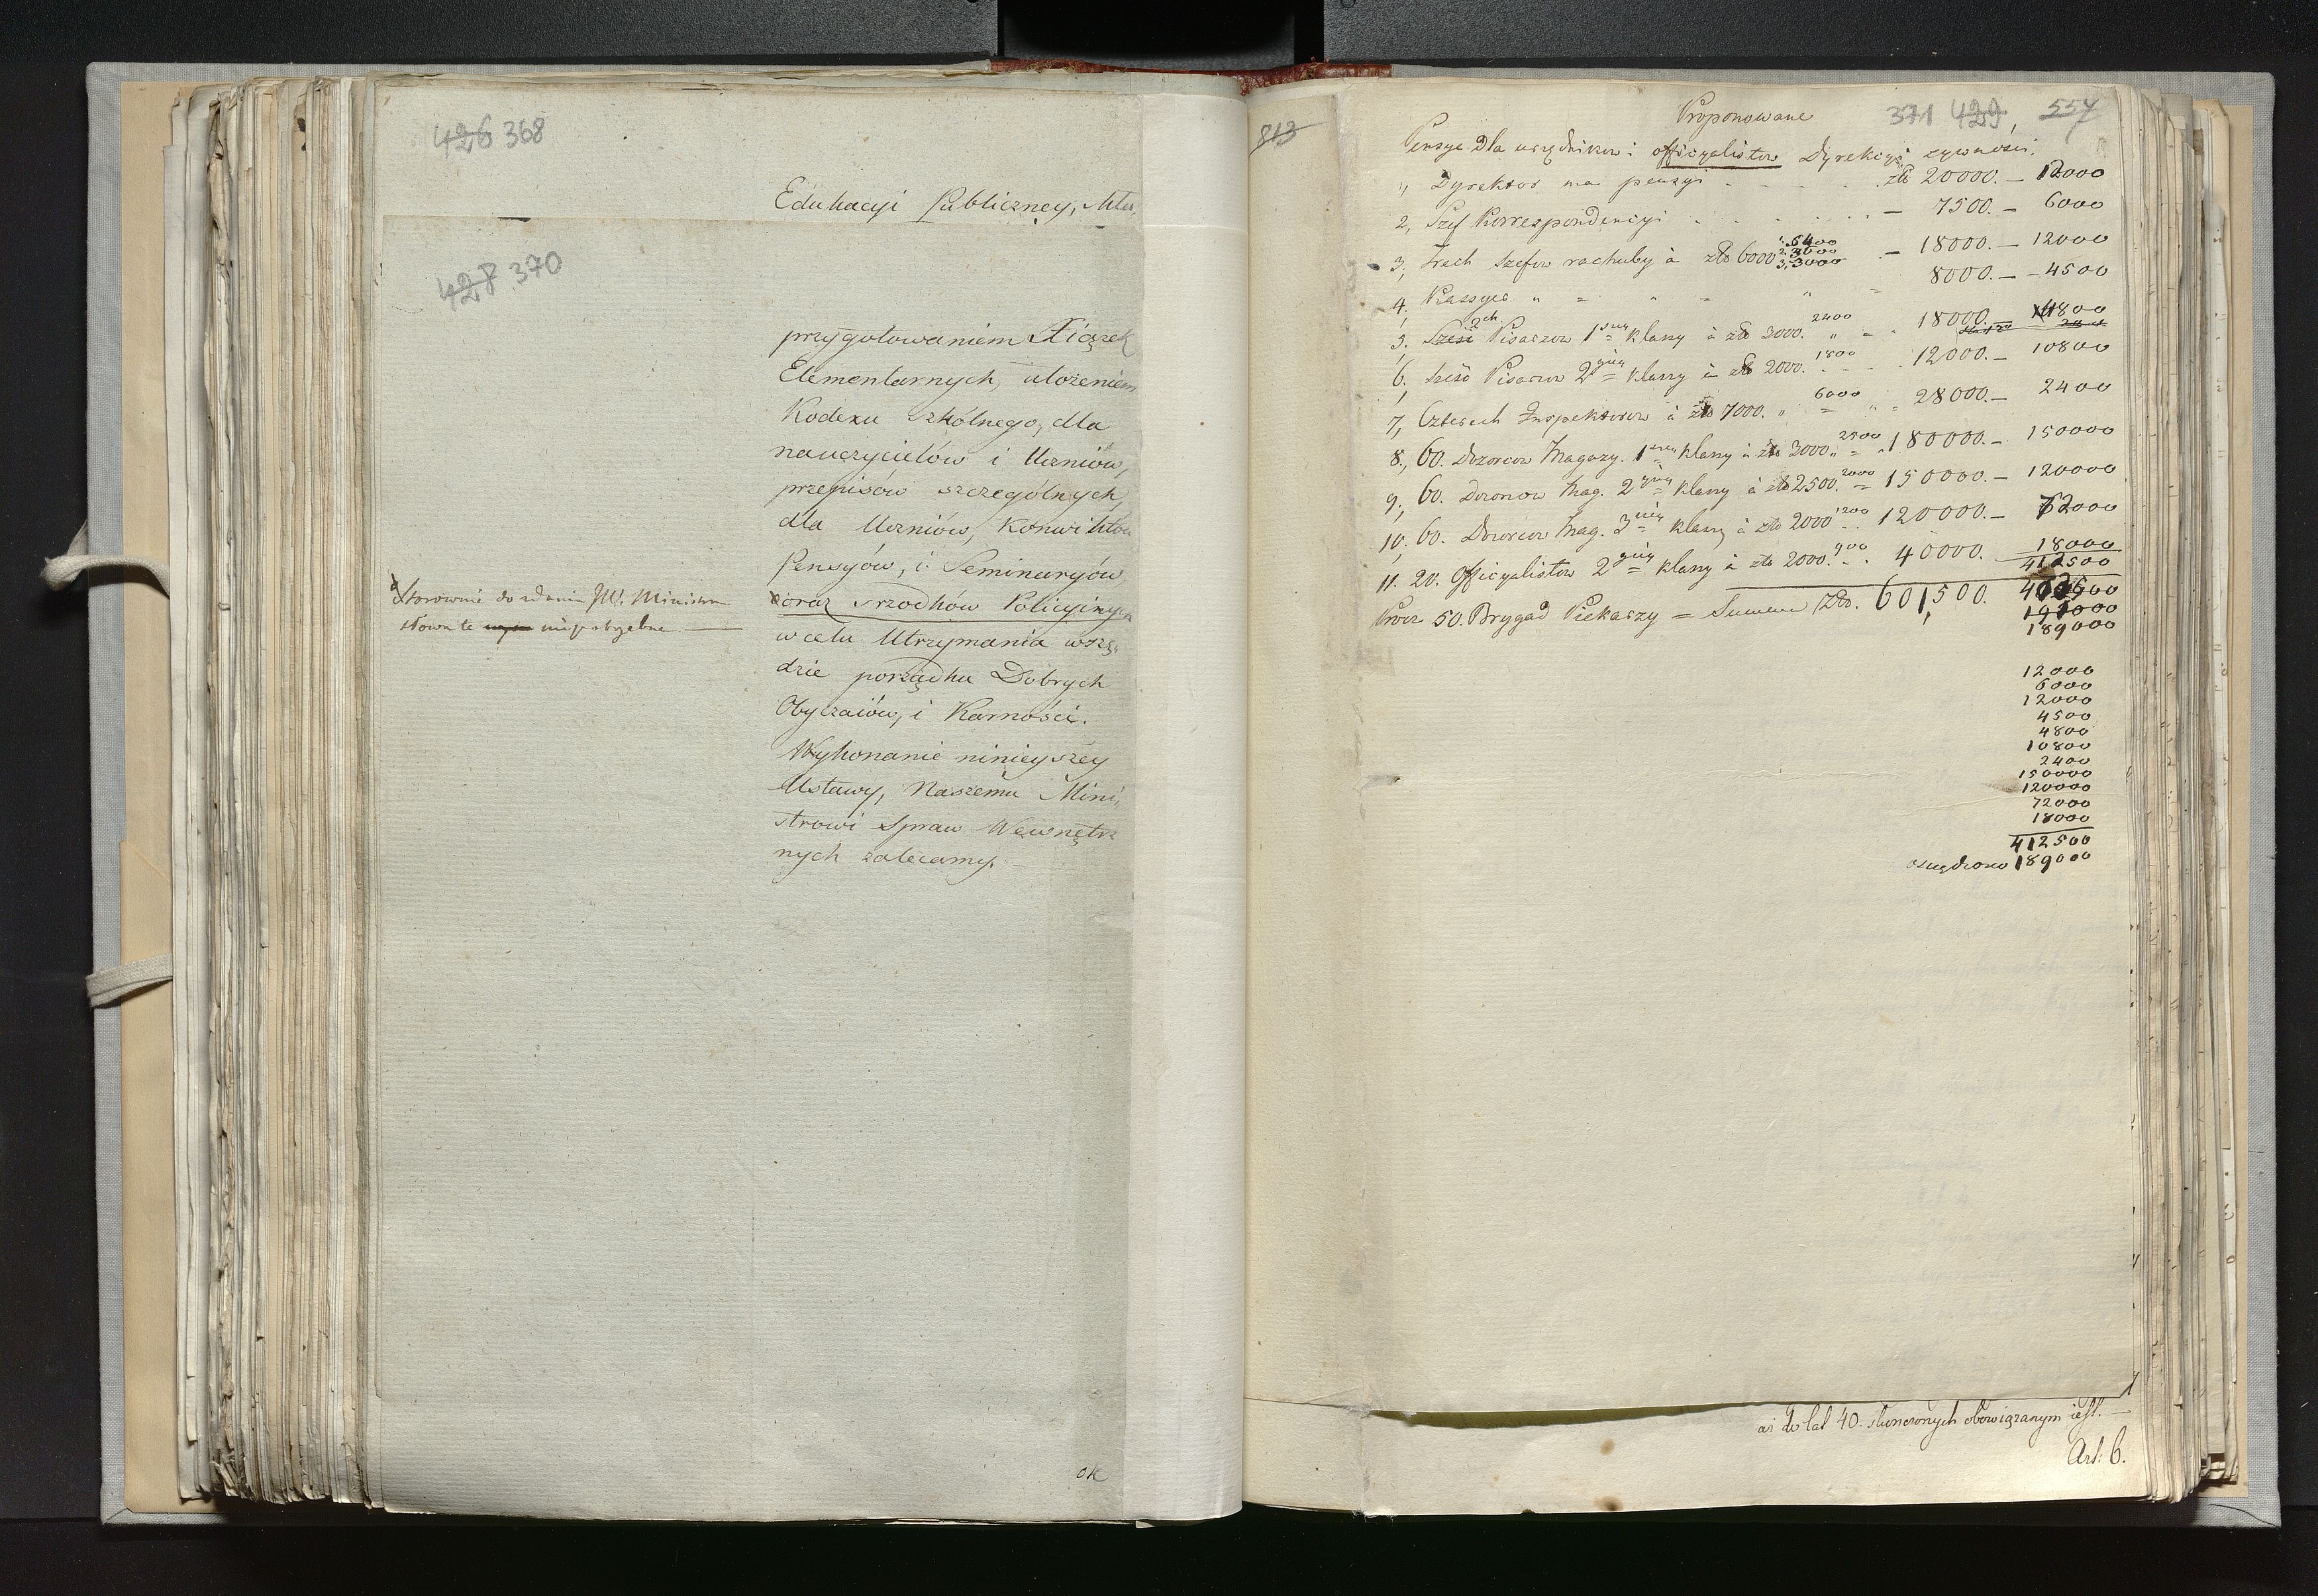 426 368
Edukacyi Publiczney,
428 370
przygotowaniem Xiążek
Elementarnych, ułożeniem
Kodexu szkólnego, dla
nauczycielów i Uczniów,
przepisów szczególnych,
dla Uczniów, Konwiktów
Pensyów, i Seminaryów,
oraz srzodków Policyinych
w celu Utrzymania wszę„
dzie porządku Dobrych
Obyczaiów, i Karności.
Wykonanie ninieyszey
Ustawy, Naszemu Mini„
strowi Spraw Wewnętrz
nych zalecamy. —
Stosownie do zdania JW. Ministra
słowa te niepotrzebne
813
371 429, 557
Proponowane
Pensye dla urzędników i officyalistow Dyrekcyi żywności.
1, Dyrektor ma pensyi . . . . . zło 20000. — 12000
2, Szef Korrespondencyi . . . . . — 7500. — 6000
3, Trzech Szefow rachuby à zło 6000 1. 6400 2. 3600 3. 3000 — 18000. — 12000
4, Kassyer „ = „ = „ = 8000. — 4500
5, Sześć 2ch Pisarzow 1szey klassy à zło 3000. 2400 „ = 18000. — 4800
6, Sześć Pisarzow 2giey klassy à zło 2000. 1800 . . 12000. — 10800
7, Czterech Inspektorow à zło 7000. 6000 „ = „ 28000. — 2400
8., 60. Dozorcow Magazy. 1szey klassy à zło 3000. 2500 „ = „ 180000. — 150000
9, 60. Dozorcow Mag. 2giey klassy à zło 2500. 2000 = 150000. — 120000
10, 60. Dozorcow Mag. 3ciey klassy à zło 2000 1200 . . 120000. — 72000
11. 20. Officyalistow 2giey klassy à zło 2000. 900 . . 40000. — 18000
412500
Procz 50. Brygad Piekarzy = Summa Zło. 601,500.
189000
12000
6000
12000
4500
4800
10800
2400
150000
120000
72000
18000
412500
oszczędzono 189000
aż do lat 40. skonczonych obowiązanym iest. —
Art: 6.